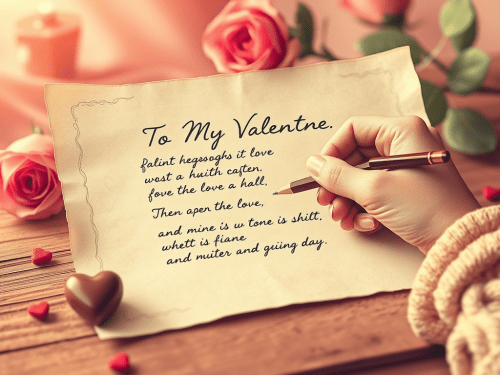 To My Valentne.
falint hegsoghs it love
wost a huith caften.
fove the love a hall,
Then apen the love,
and mine is w tone is shilt.
whett is fiane
and muiter and guiing day.